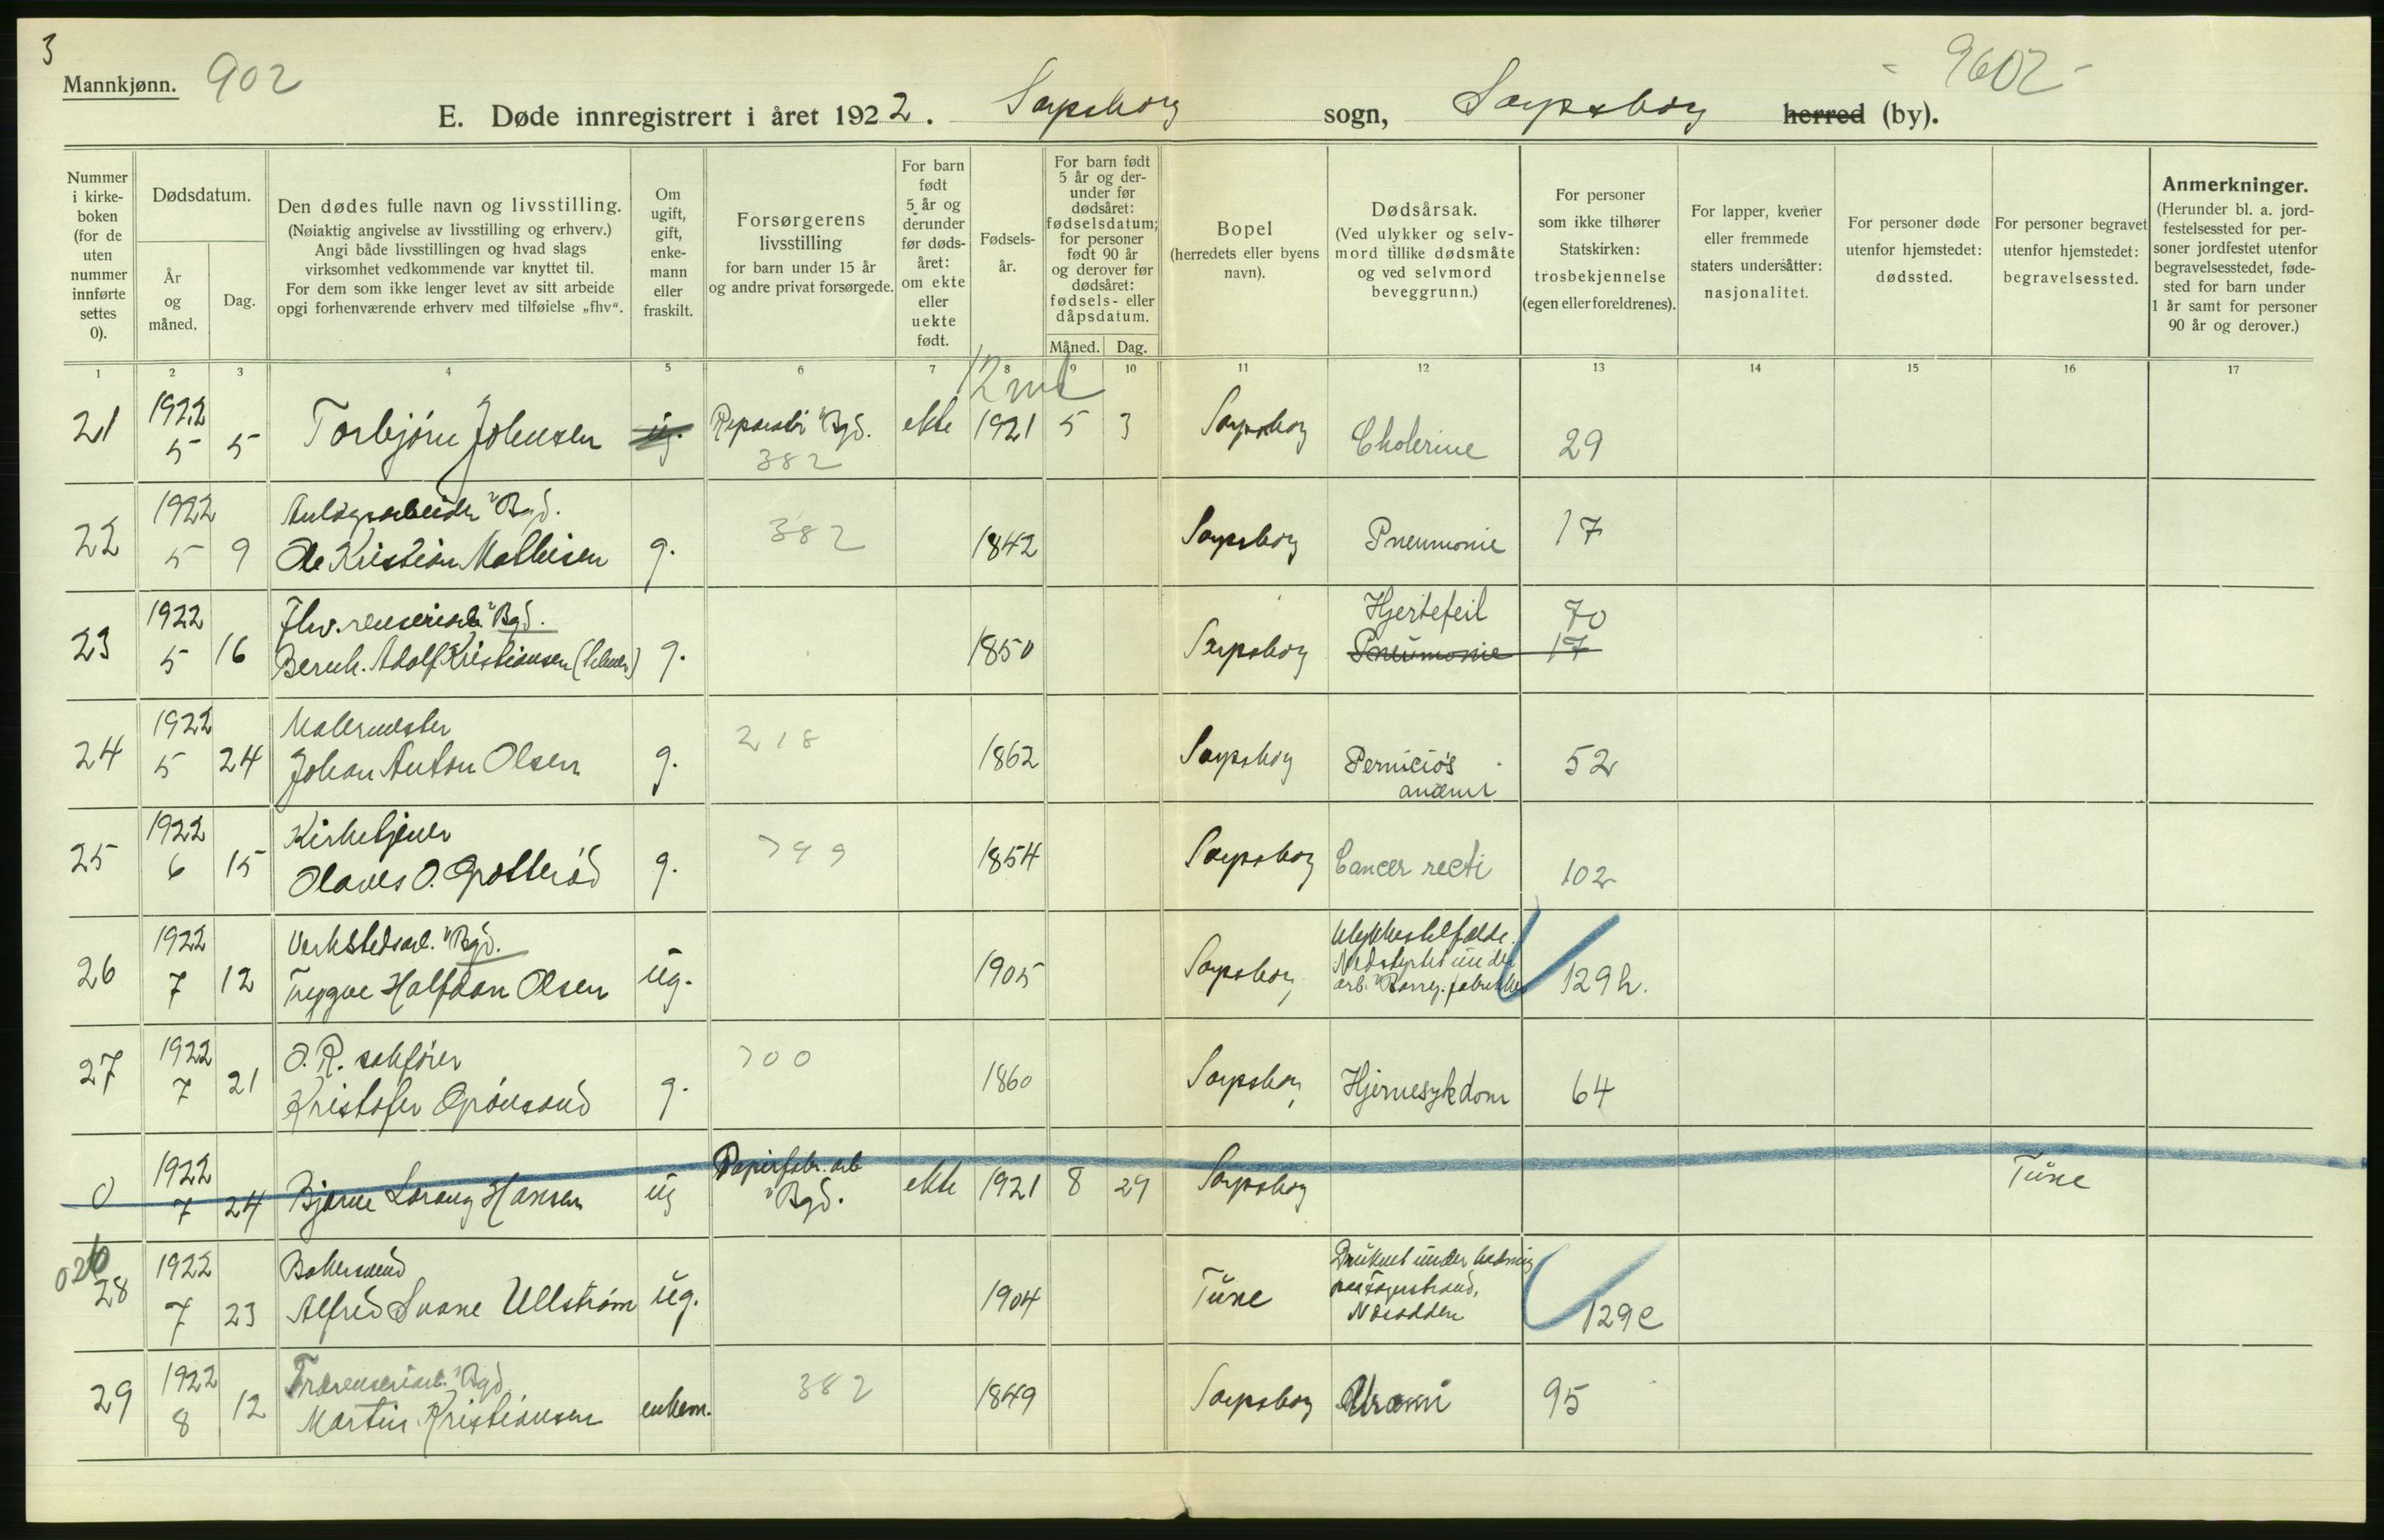 3
Mannkjønn. 902
- 9602 -
E. Døde innregistrert i året 1922. Sarpsborg sogn, Sarpsborg herred (by).
Nummer i kirke-boken (for de uten nummer innførte settes 0).
Dødsdatum.
År og måned.
Dag.
Den dødes fulle navn og livsstilling.
(Nøiaktig angivelse av livsstilling og erhverv.)
Angi både livsstillingen og hvad slags
virksomhet vedkommende var knyttet til.
For dem som ikke lenger levet av sitt arbeide
opgi forhenværende erhverv med tilføielse „fhv“.
Om ugift, gift, enke-mann eller fraskilt.
Forsørgerens livsstilling
for barn under 15 år
og andre privat forsørgede.
For barn født 5 år og derunder før døds-året: om ekte eller uekte født.
Fødsels-år.
For barn født 5 år og der-under før dødsåret: fødselsdatum; for personer født 90 år og derover før dødsåret: fødsels- eller dåpsdatum.
Måned. Dag.
Bopel
(herredets eller byens navn).
Dødsårsak.
(Ved ulykker og selv-mord tillike dødsmåte og ved selvmord beveggrunn.)
For personer som ikke tilhører Statskirken: trosbekjennelse (egen eller foreldrenes).
For lapper, kvener eller fremmede staters undersåtter: nasjonalitet.
For personer døde utenfor hjemstedet: dødssted.
For personer begravet utenfor hjemstedet: begravelsessted.
Anmerkninger.
(Herunder bl. a. jord-festelsessted for per-soner jordfestet utenfor begravelsesstedet, føde-sted for barn under 1 år samt for personer 90 år og derover.)
1 2 3 4 5 6 7 8 9 10 11 12 13 14 15 16 17
12 md
21 1922 5 5 Torbjørn Johensen ug. Reparatør "Bgd. 382 ekte 1921 5 3 Sarpsborg Cholerine 29
22 1922 5 9 Anlægsarbeider "Bgd.
Ole Kristian Mathisen g. 382 1842 Sarpsborg Pneumonie 17
23 1922 5 16 Fhv. renseriarb. "Bgd.
Bernh. Adolf Kristiansen g. 1850 Sarpsborg Hjertefeil 70
Pneumonie 17
24 1922 5 24 Malermester
Johan Anton Olsen g. 218 1862 Sarpsborg Perniciøs anæmi 52
25 1922 6 15 Kirketjener
Olaves O. Grotterød g. 799 1854 Sarpsborg Cancer recti 102
26 1922 7 12 Verkstedsarb. "Bgd.
Tryggve Halfdan Olsen ug. 1905 Sarpsborg Ulykkestilfælde.
Nedstyrtet under
arb. "Borreg. fabrikker 129 h.
27 1922 7 21 O.R. sakfører
Kristofer Grønsand g. 700 1860 Sarpsborg Hjernesykdom 64
0 1922 7 24 Bjarne Lorang Hansen ug Papirfabr. arb
"Bgd. ekte 1921 8 29 Sarpsborg Tune
026
28 1922 7 23 Bakersvend
Alfred Svane Ullstrøm ug. 1904 Tune Druknet under badning
paa Fagerstrand,
Nesodden 129 e
29 1922 8 12 Træsenseriarb. "Bgd
Martin Kristiansen enkem. 382 1849 Sarpsborg Uræmi 95